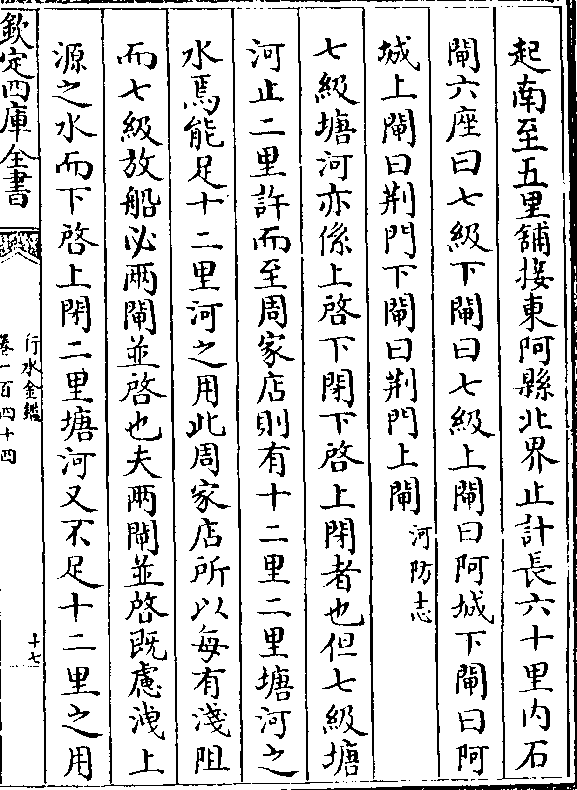 起南至五里舖接東阿縣北界止計長六十里内石
閘六座曰七級下閘曰七級上閘曰阿城下閘曰阿
城上閘曰荆門下閘曰荆門上閘河防志
七級塘河亦係上啓下閉下啓上閉者也但七級塘
河止二里許而至周家店則有十二里二里塘河之
水焉能足十二里河之用此周家店所以每有淺阻
而七級放船必兩閘並啓也夫兩閘並啓既慮洩上
源之水而下啓上閉二里塘河又不足十二里之用
欽定四庫全書
行水金鑑
卷一百四十四
十七